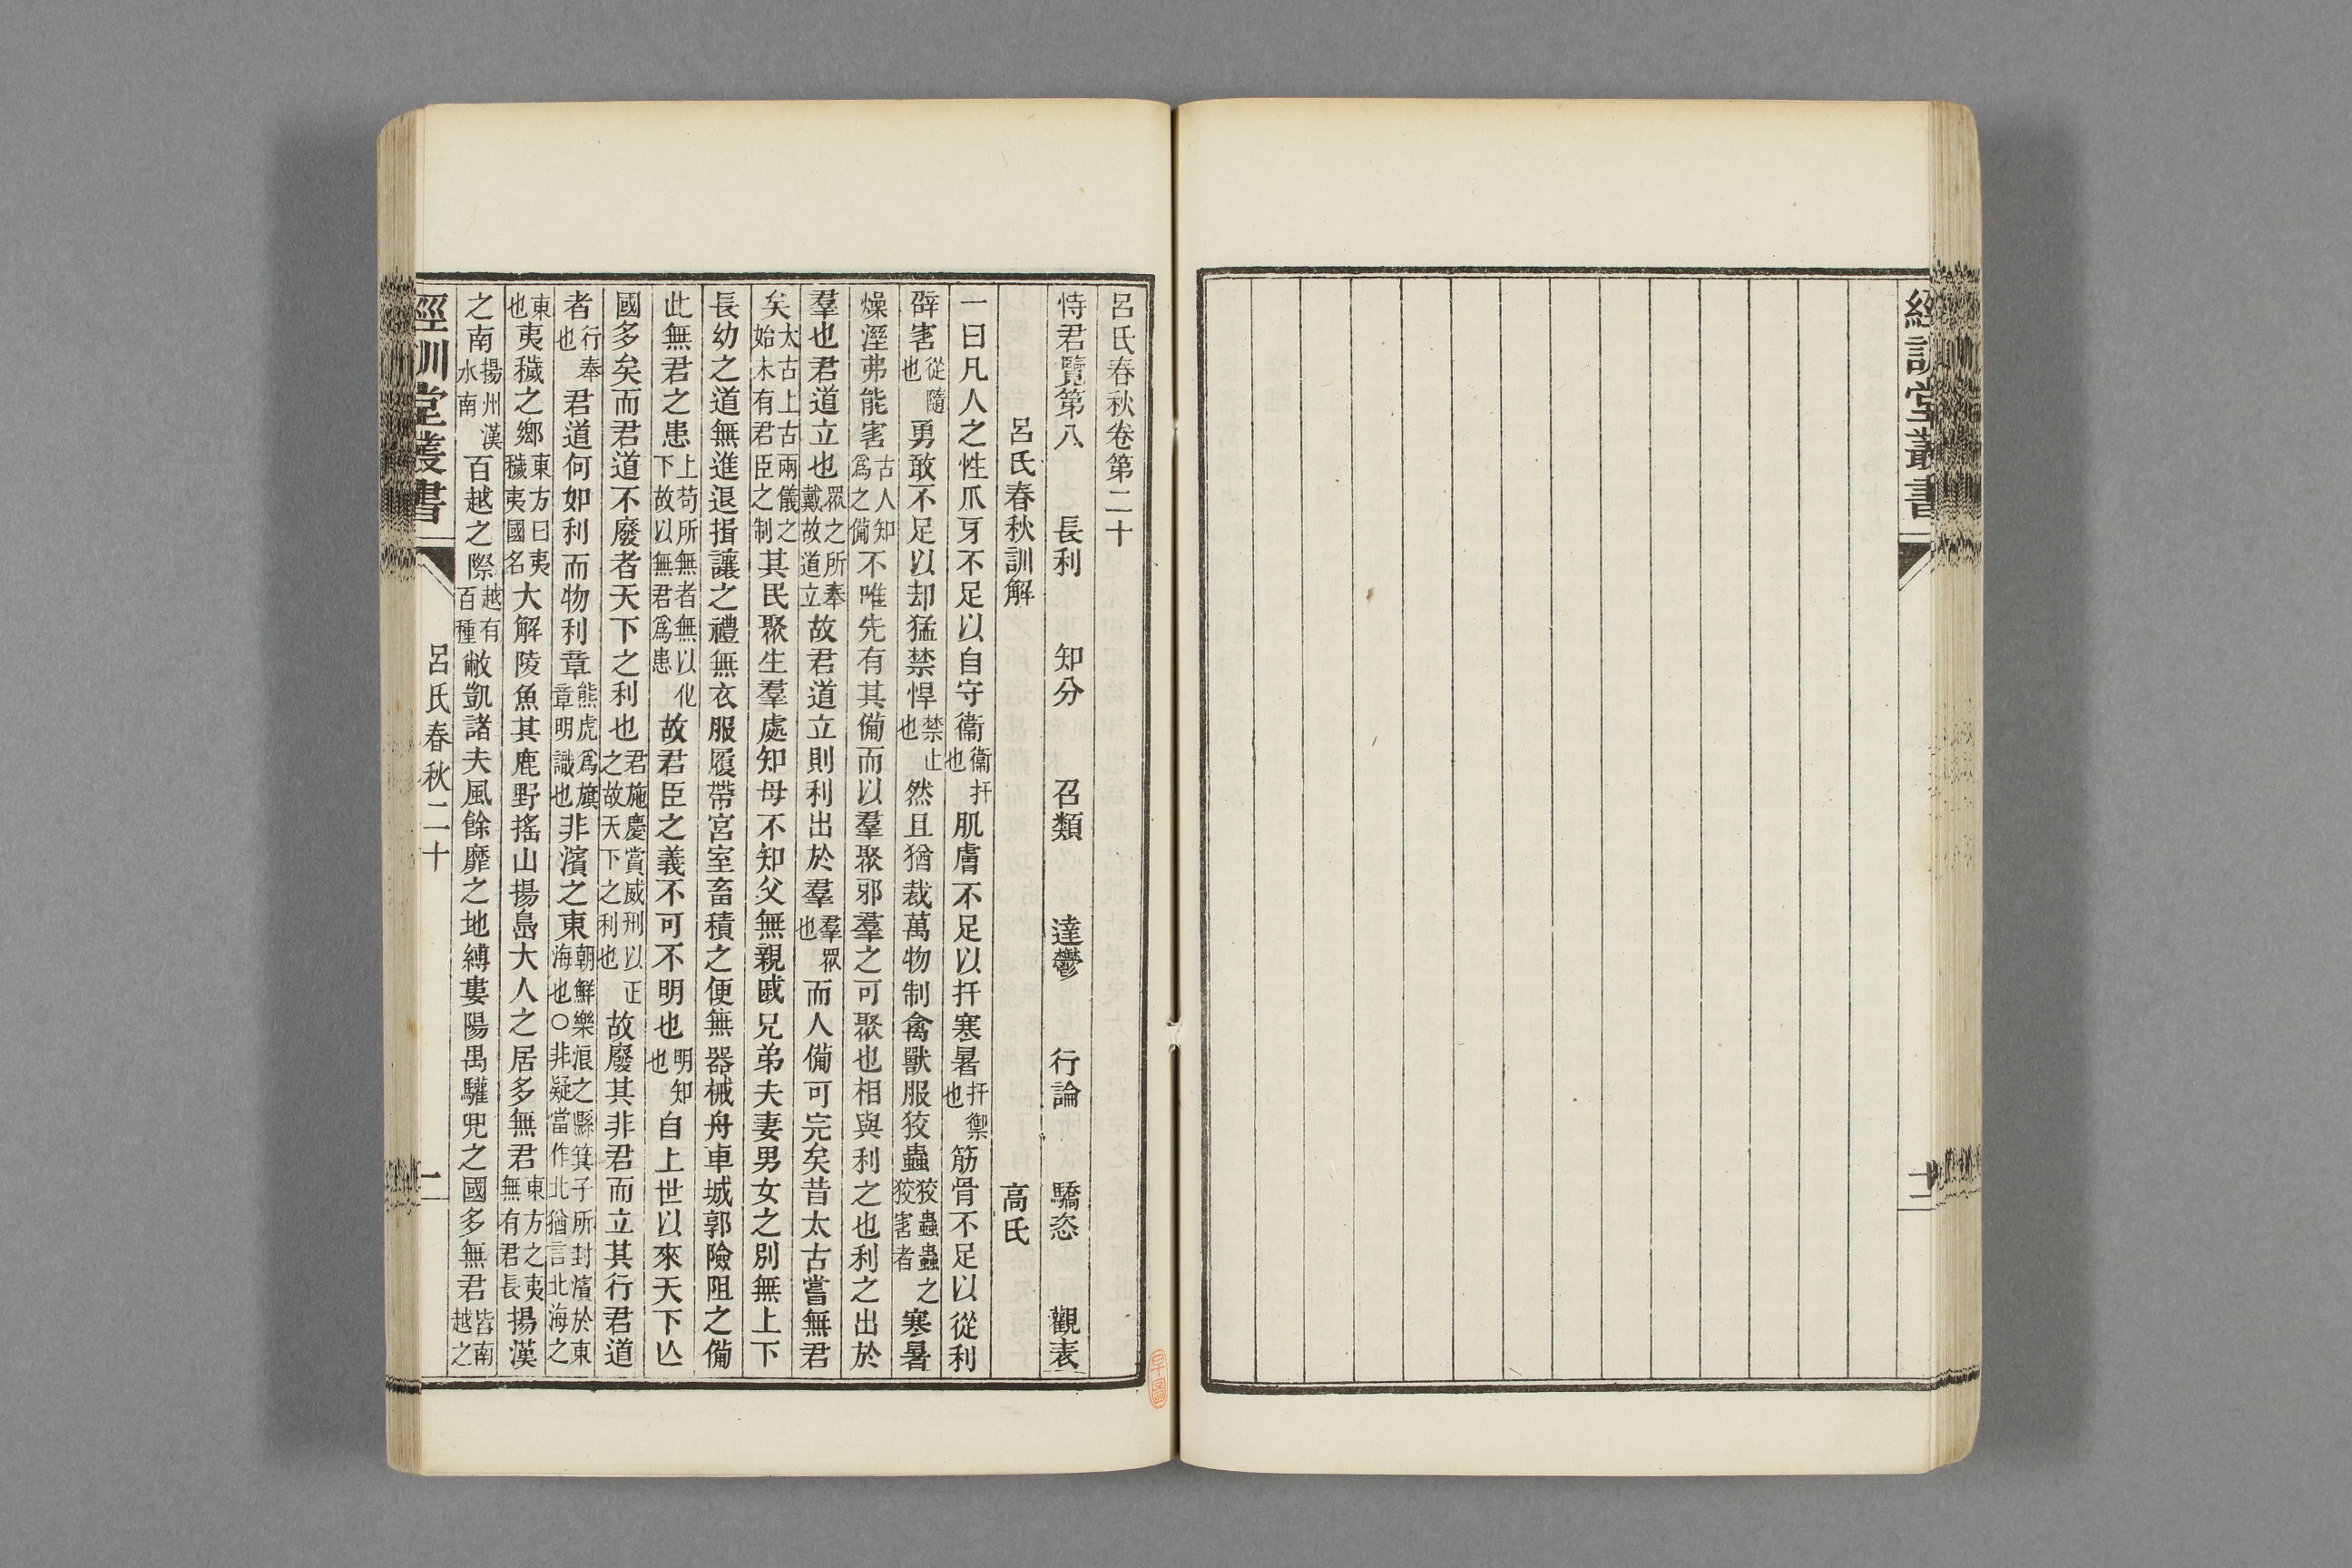 經訓堂叢書
十二
呂氏春秋卷第二十
恃君覽第八 長利 知分 召類 達鬱 行論 驕恣 觀表
呂氏春秋訓解 高氏
一曰凡人之性爪牙不足以自守衞衞扞也肌膚不足以扞寒暑扞禦也筋骨不足以從利
辟害從隨也勇敢不足以却猛禁悍禁止也然且猶裁萬物制禽獸服狡蟲狡蟲蟲之狡害者寒暑
燥溼弗能害古人知爲之備不唯先有其備而以羣聚邪羣之可聚也相與利之也利之出於
羣也君道立也眾之所奉戴故道立故君道立則利出於羣羣眾也而人備可完矣昔太古嘗無君
矣太古上古兩儀之始未有君臣之制其民聚生羣處知母不知父無親戚兄弟夫妻男女之別無上下
長幼之道無進退揖讓之禮無衣服履帶宮室畜積之便無器械舟車城郭險阻之備
此無君之患上苟所無者無以化下故以無君爲患故君臣之義不可不明也明知也自上世以來天下亾
國多矣而君道不廢者天下之利也君施慶賞威刑以正之故天下之利也故廢其非君而立其行君道
者行奉也君道何如利而物利章熊虎爲旗章明識也非濱之東朝鮮樂浪之縣箕子所封濱於東海也○非疑當作北猶言北海之
東也夷穢之鄉東方曰夷穢夷國名大解陵魚其鹿野搖山揚島大人之居多無君東方之夷無有君長揚漢
之南揚州漢水南百越之際越有百種敝凱諸夫風餘靡之地縛婁陽禺驩兜之國多無君皆南越之
經訓堂叢書 呂氏春秋二十 二